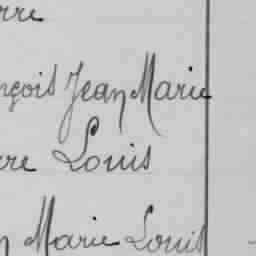 rre
nçois Jean Marie
rre Louis
n Marie Louis